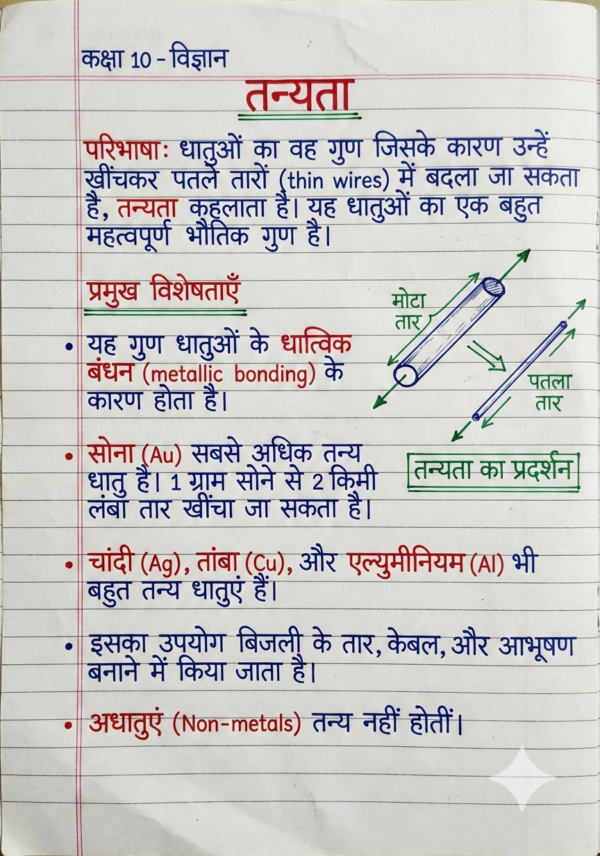 कक्षा 10 - विज्ञान
तन्यता
परिभाषा: धातुओं का वह गुण जिसके कारण उन्हें
खींचकर पतले तारों (thin wires) में बदला जा सकता
है, तन्यता कहलाता है। यह धातुओं का एक बहुत
महत्वपूर्ण भौतिक गुण है।
प्रमुख विशेषताएँ
• यह गुण धातुओं के धात्विक
बंधन (metallic bonding) के
कारण होता है।
मोटा
तार
पतला
तार
तन्यता का प्रदर्शन
• सोना (Au) सबसे अधिक तन्य
धातु है। 1 ग्राम सोने से 2 किमी
लंबा तार खींचा जा सकता है।
• चांदी (Ag), तांबा (Cu), और एल्युमीनियम (Al) भी
बहुत तन्य धातुएं हैं।
• इसका उपयोग बिजली के तार, केबल, और आभूषण
बनाने में किया जाता है।
• अधातुएं (Non-metals) तन्य नहीं होतीं।